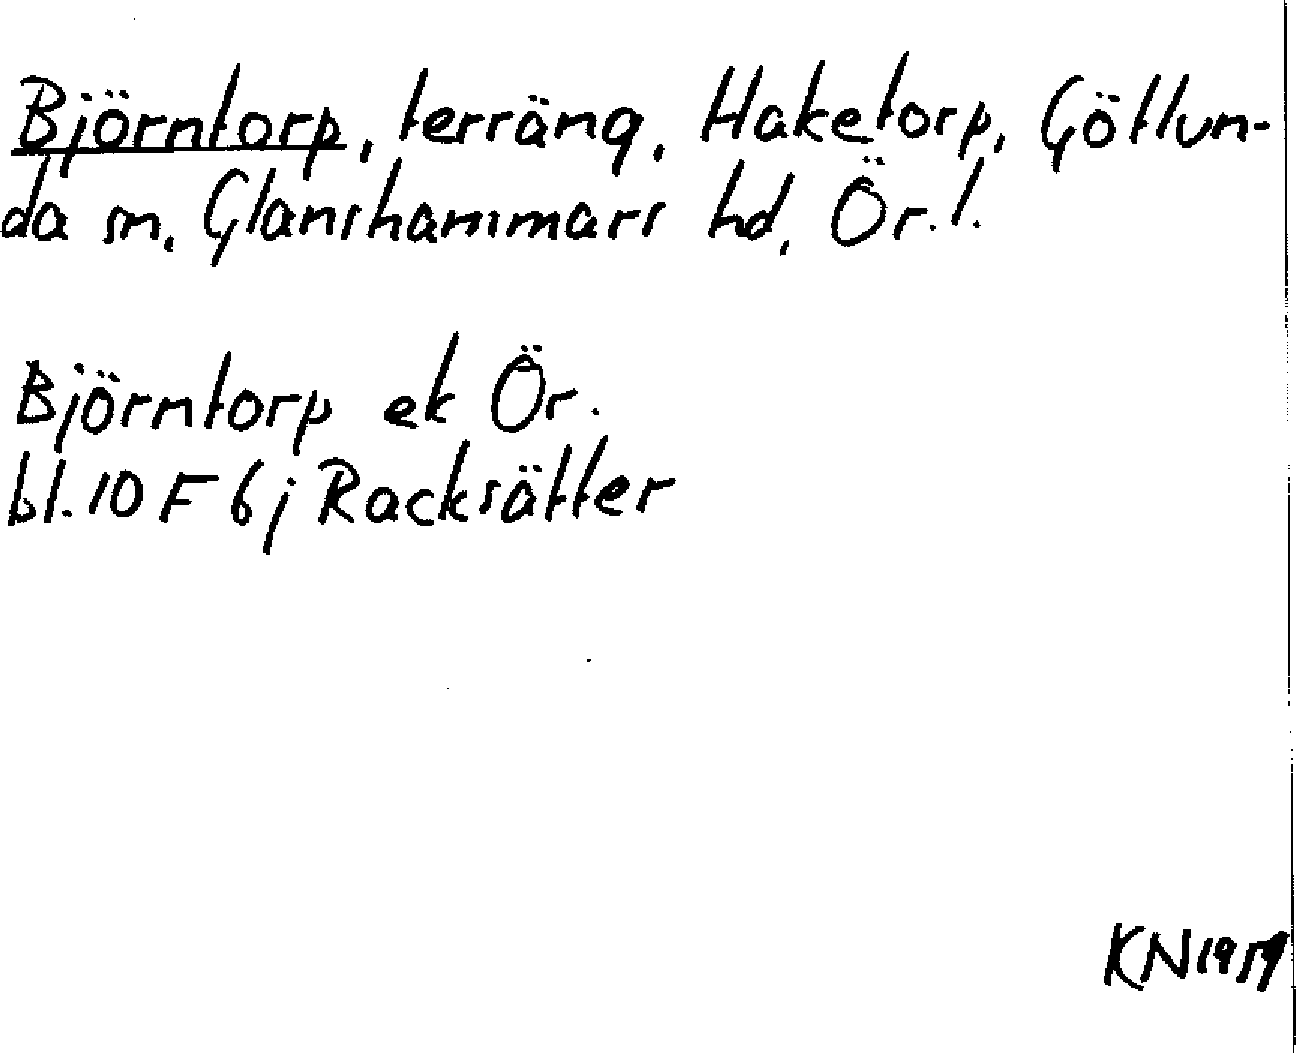 Björntorp, terräng, Haketorp, Götlun-
da sn, Glanshammars hd, Ör. l.
Björntorp ek Ör.
bl. 10 F 6j Racksätter
KN 1959